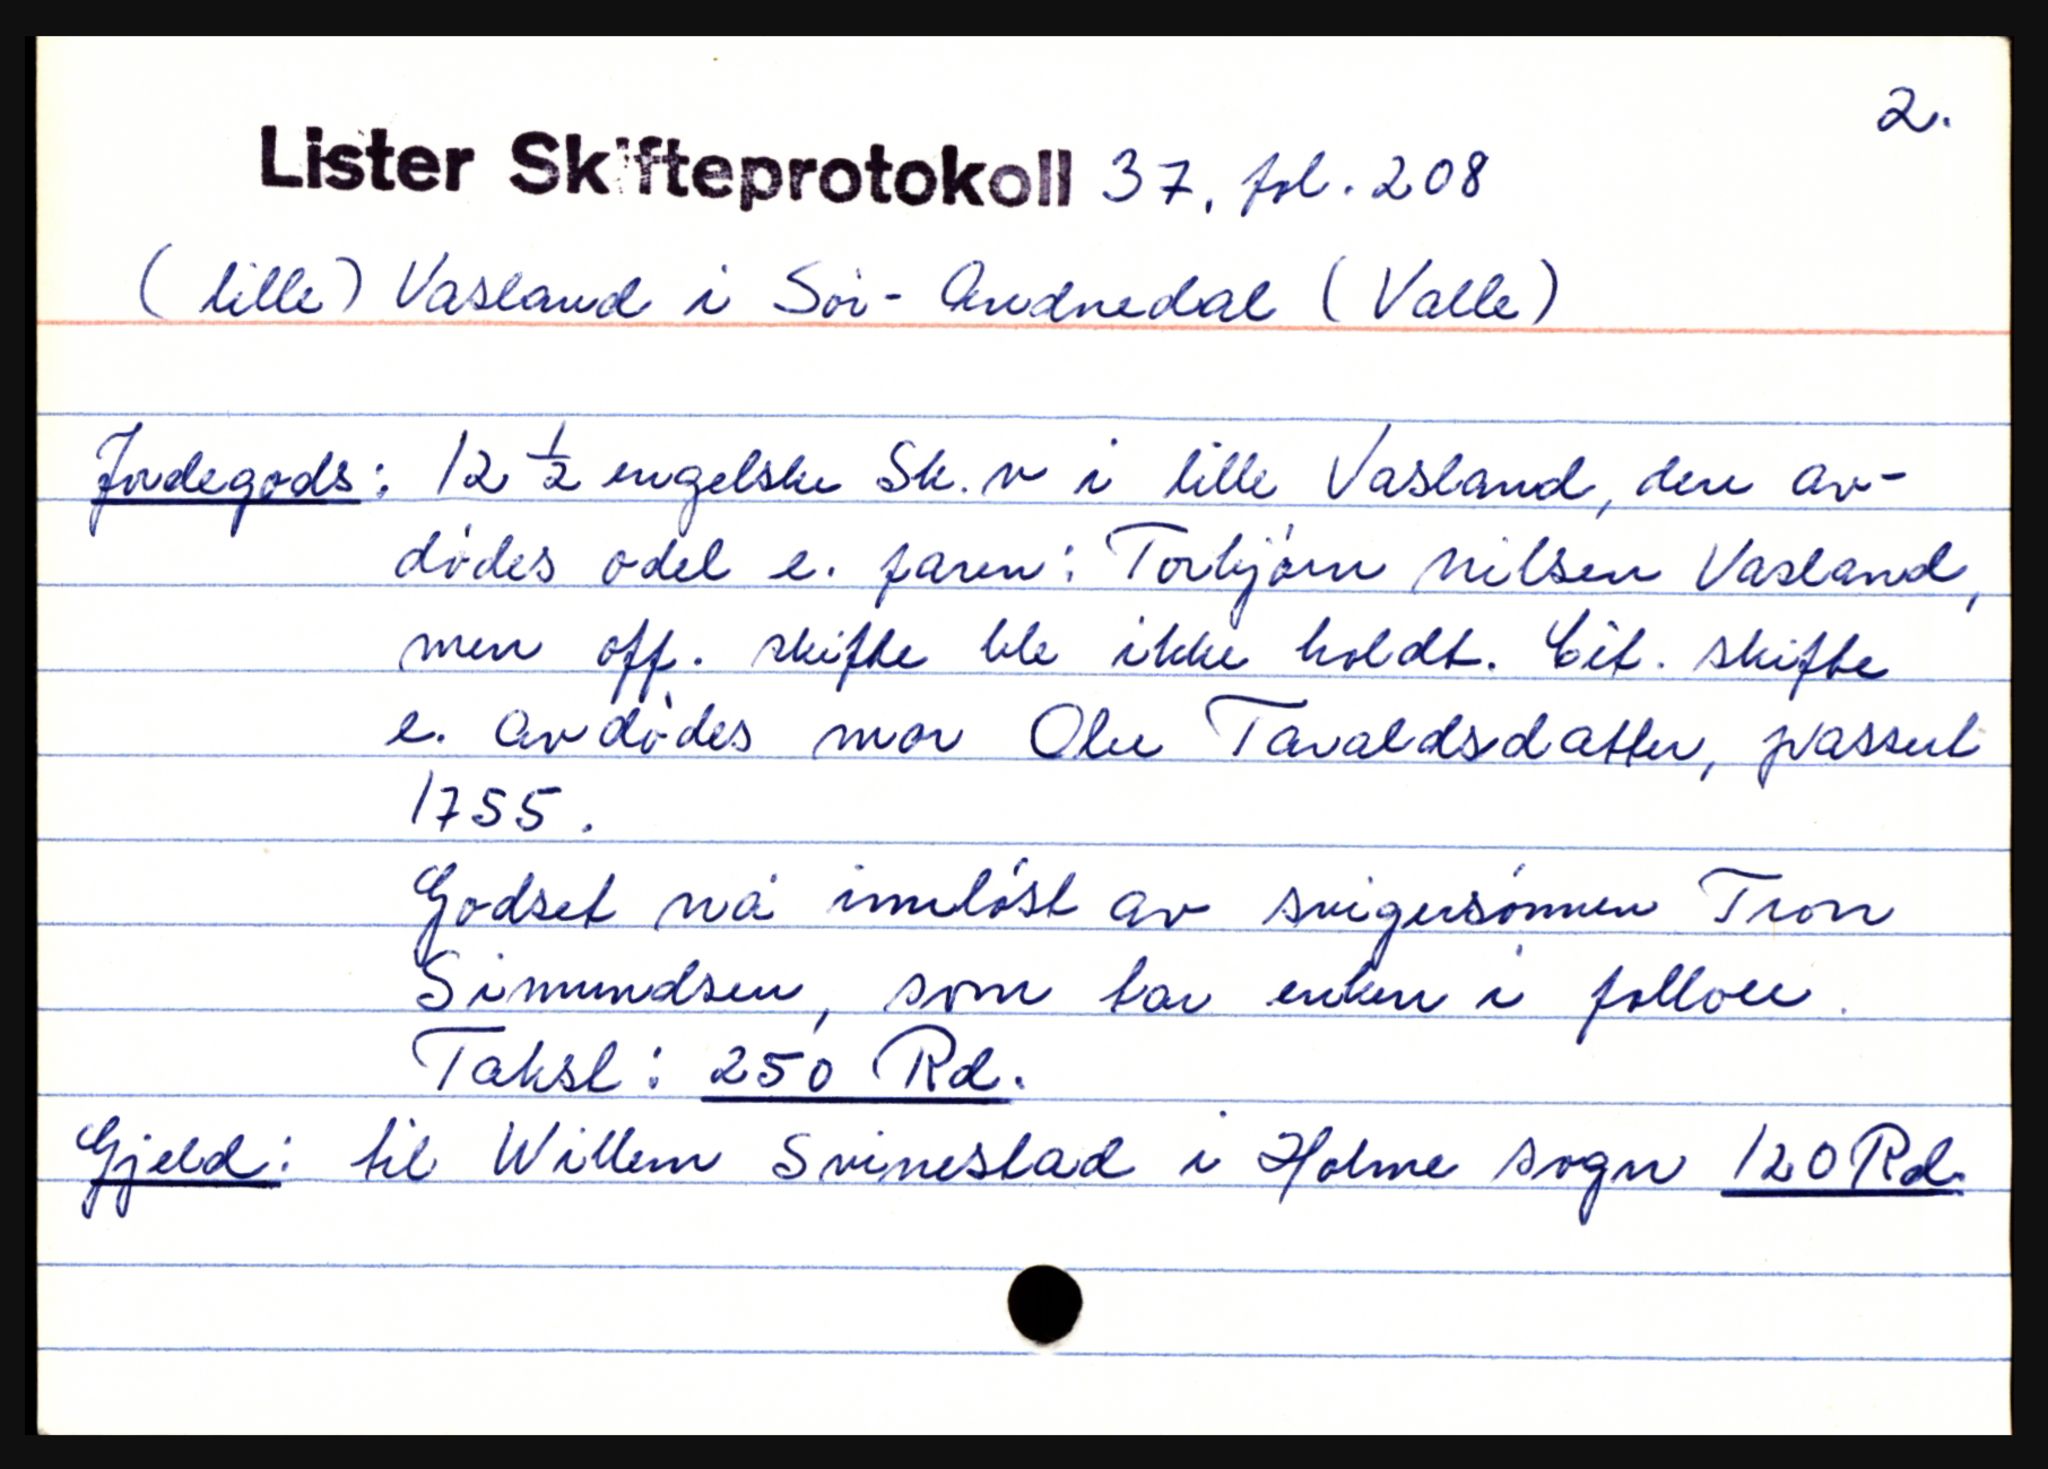 2.
Lister Skifteprotokoll 37, fol. 208
(lille) Vasland i Sör-Audnedal (Valle)
Jordegods: 12 ½ engelske Sk. v i lille Vasland, den av-
dödes odel e. faren: Torbjörn Nilsen Vasland,
men off. skifte ble ikke holdt. Cit. skifte
e. avdödes mor Olu Tavaldsdatter, passert
1755.
Godset nå innlöst av svigersönnen Tron
Simundsen, som tar enken i follou.
Takst: 250 Rd.
Gjeld: til Willem Svinestad i Holme sogn 120 Rd.